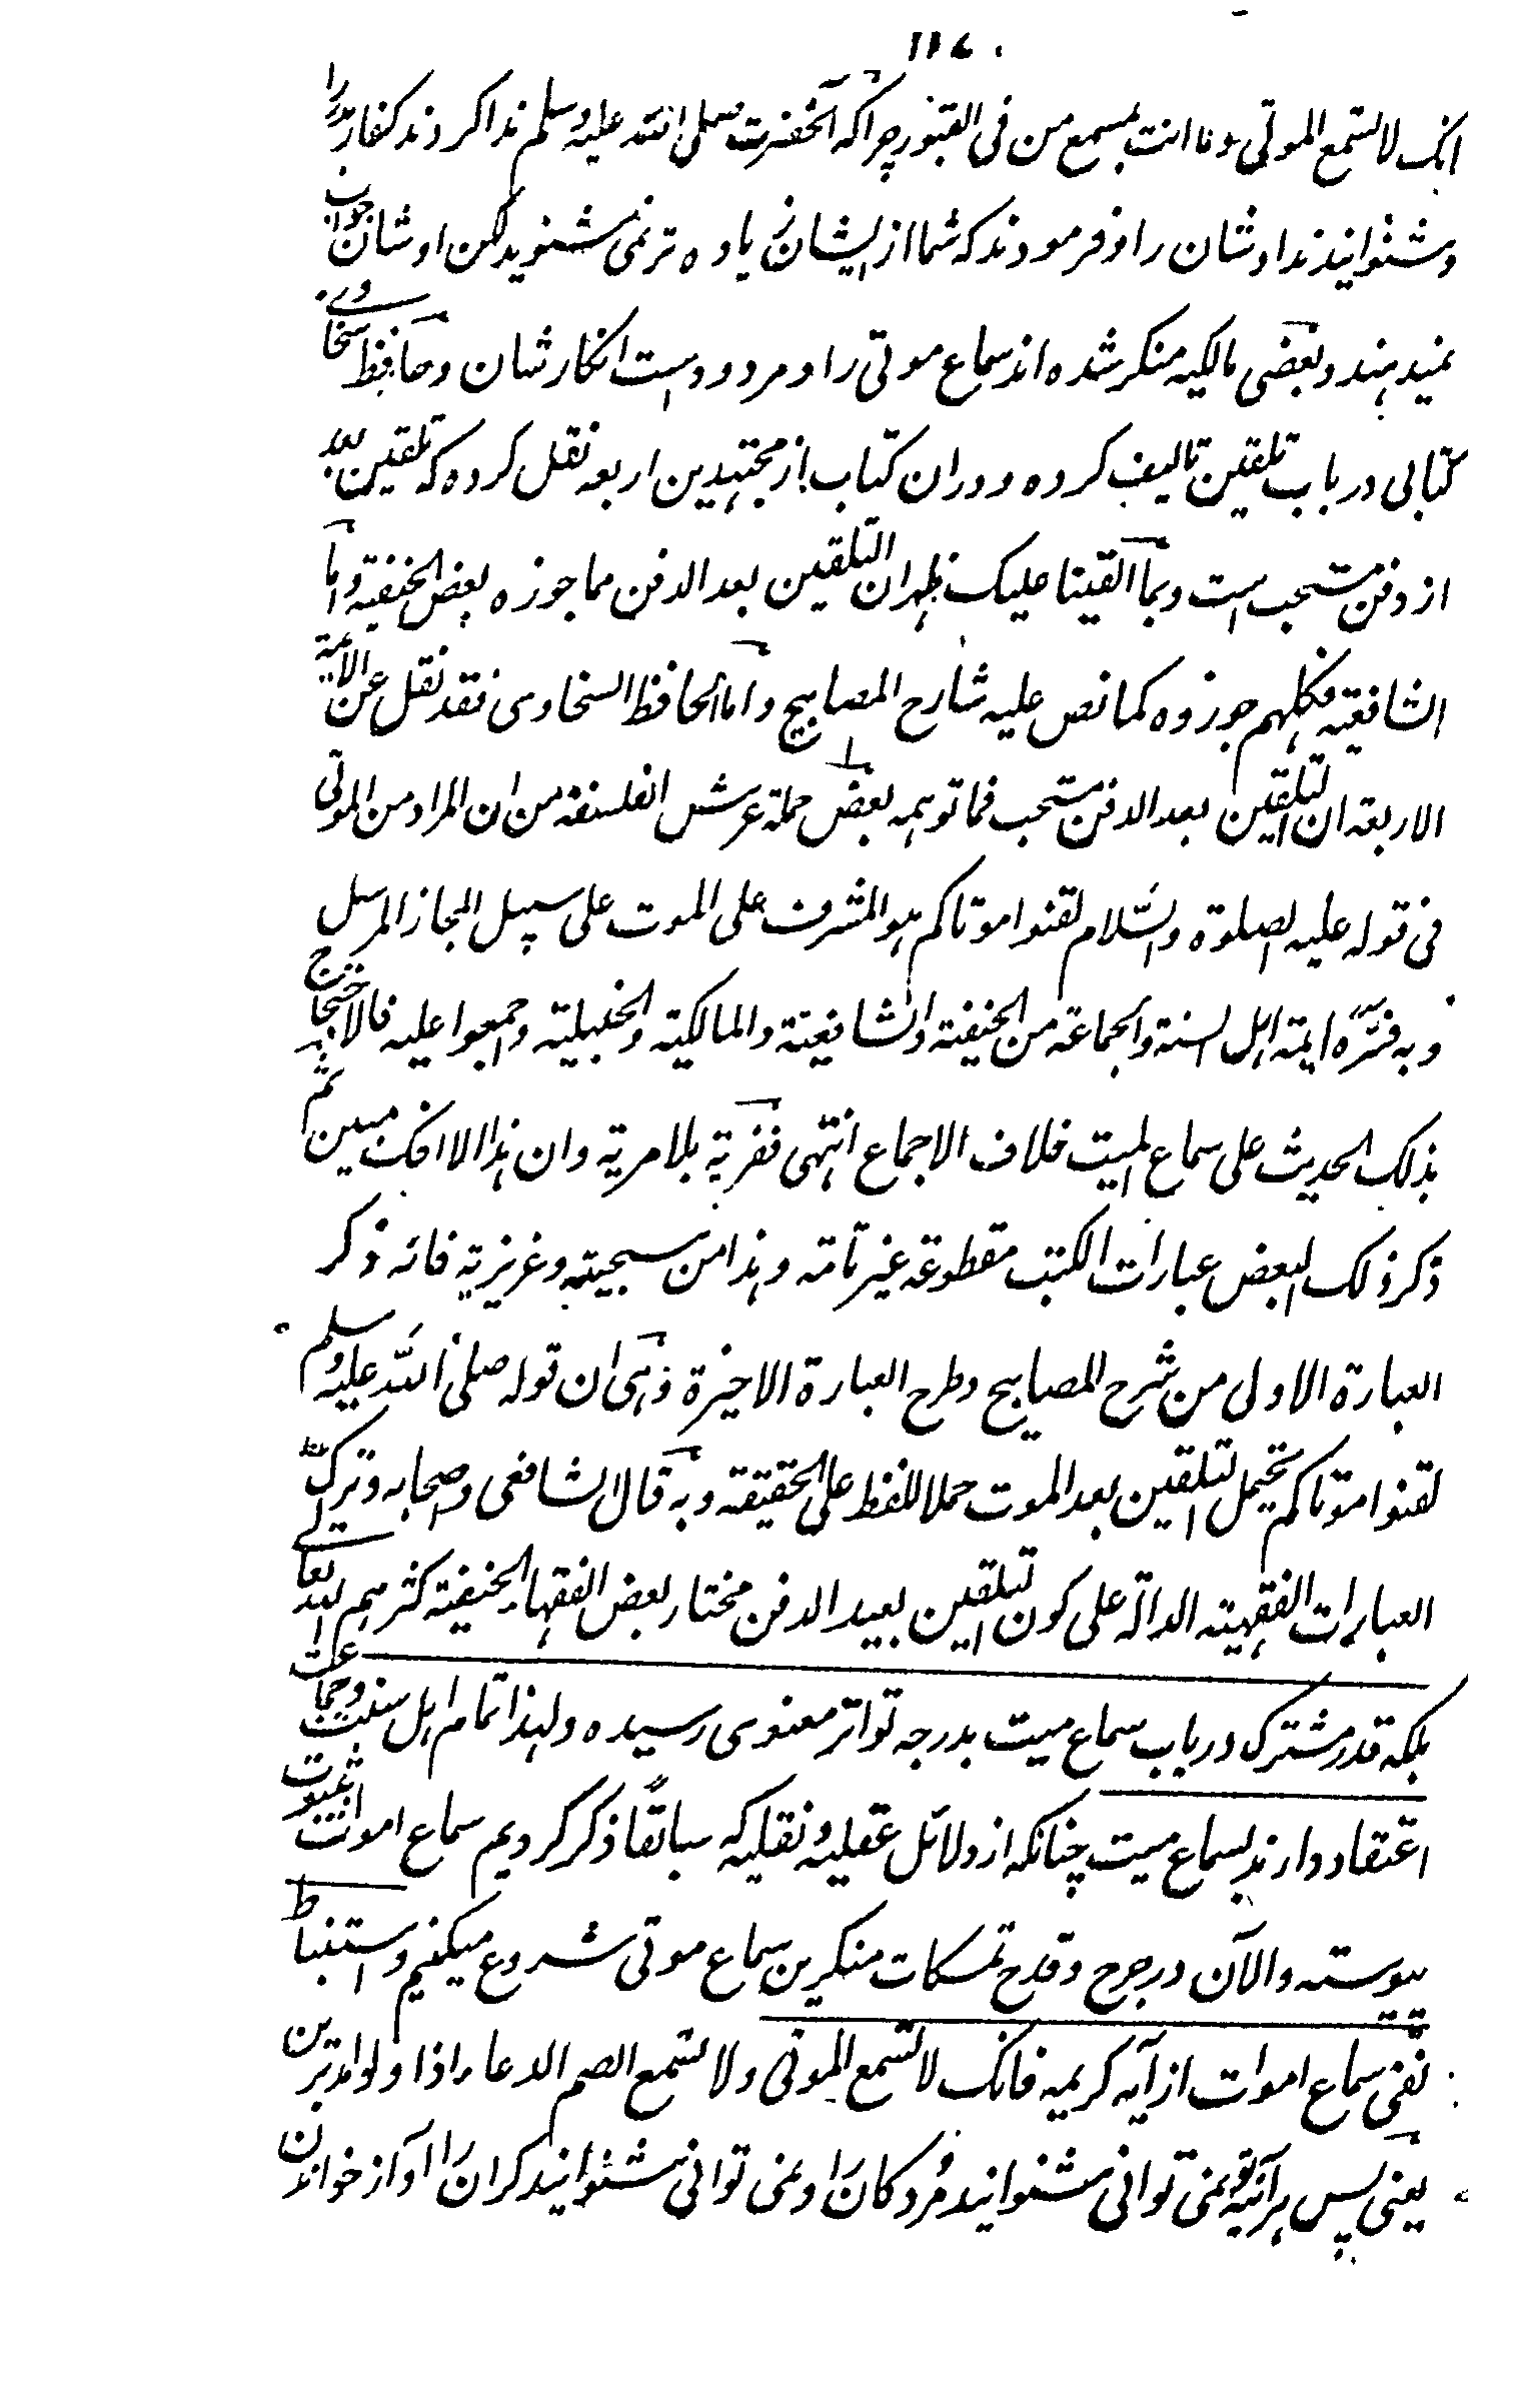 ۱۱۷
انک لا تسمع الموتی وما انت بمسمع من فی القبور چرا که آنحضرت صلی الله علیه وسلم ندا کردند کفار بدر را
وشنوانیدند اوشان را و فرمودند که شما از ایشان زیاده تر نمی شنوید لکن اوشان جواب
نمیدهند و بعضی مالکیه منکر شده اند سماع موتی را و مردود است انکار شان وحافظ سخاوی
کتابی در باب تلقین تالیف کرده و دران کتاب از مجتهدین اربعه نقل کرده که تلقین بعد
از دفن مستحب است وبما القینا علیک ظهر ان التلقین بعد الدفن مما جوزه بعض الحنفیة واما
الشافعیة فکلهم جوزوه کما نص علیه شارح المصابیح واما الحافظ السخاوی فقد نقل عن الائمة
الاربعة ان التلقین بعد الدفن مستحب فما توهمه بعض حملة عرش الفلسفة من ان المراد من الموتی
فی قوله علیه الصلوة والسّلام لقنوا موتاکم هو المشرف علی الموت علی سبیل المجاز المرسل
وبه فسّره ایمة اهل السنة والجماعة من الحنفیة والشافعیة والمالکیة والحنبلیة واجمعوا علیه فالاحتجاج
بذلک الحدیث علی سماع المیت خلاف الاجماع انتهی ففریة بلا مریة وان هذا الا افک مبین ثم
ذکر ذلک البعض عبارات الکتب مقطوعة غیر تامة وهذا من سجیته وغریزیة فانه ذکر
العبارة الاولی من شرح المصابیح وطرح العبارة الاخیرة وهی ان قوله صلی الله علیه وسلم
لقنوا موتاکم یحتمل التلقین بعد الموت حملا للفظ علی الحقیقة وبه قال الشافعی واصحابه وترک
العبارات الفقهیة الدالة علی کون التلقین بعید الدفن مختار بعض الفقهاء الحنفیة کثرهم الله تعالی
بلکه قدر مشترک در باب سماع میت بدرجه تواتر معنوی رسیده ولهذا تمام اهل سنت وجماعت
اعتقاد دارند بسماع میت چنانکه از دلائل عقلیه ونقلیه که سابقاً ذکر کردیم سماع اموات بثبوت
پیوسته والآن در جرح وقدح تمسکات منکرین سماع موتی شروع میکنیم واستنباط
نفی سماع اموات از آیه کریمه فانک لا تسمع الموتی ولا تسمع الصم الدعاء اذا ولوا مدبرین
یعنی پس هرآئینه تو نمی توانی شنوانید مردکان را و نمی توانی شنوانید کران را آواز خواندن